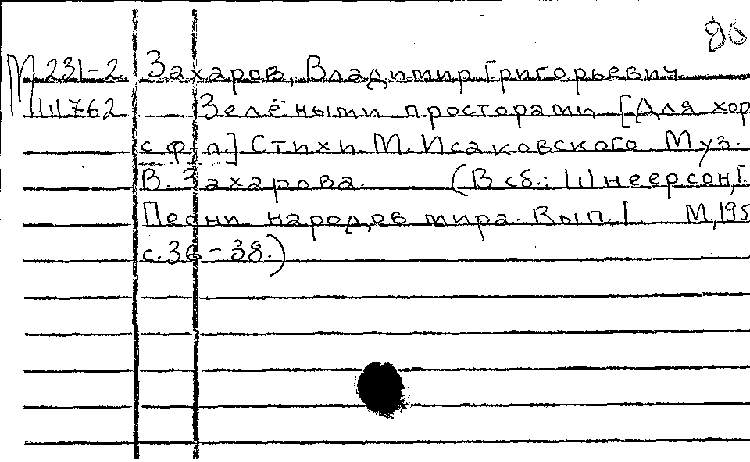 80
М 231-2 Захаров, Владимир Григорьевич
Ш762 Зелёными просторами [Для хор
с ф.п.] Стихи М. Исаковского. Муз.
В. Захарова. (В сб.: Шнеерсон, Г.
Песни народов мира. Вып. I. М, 195
с. 36-38.)